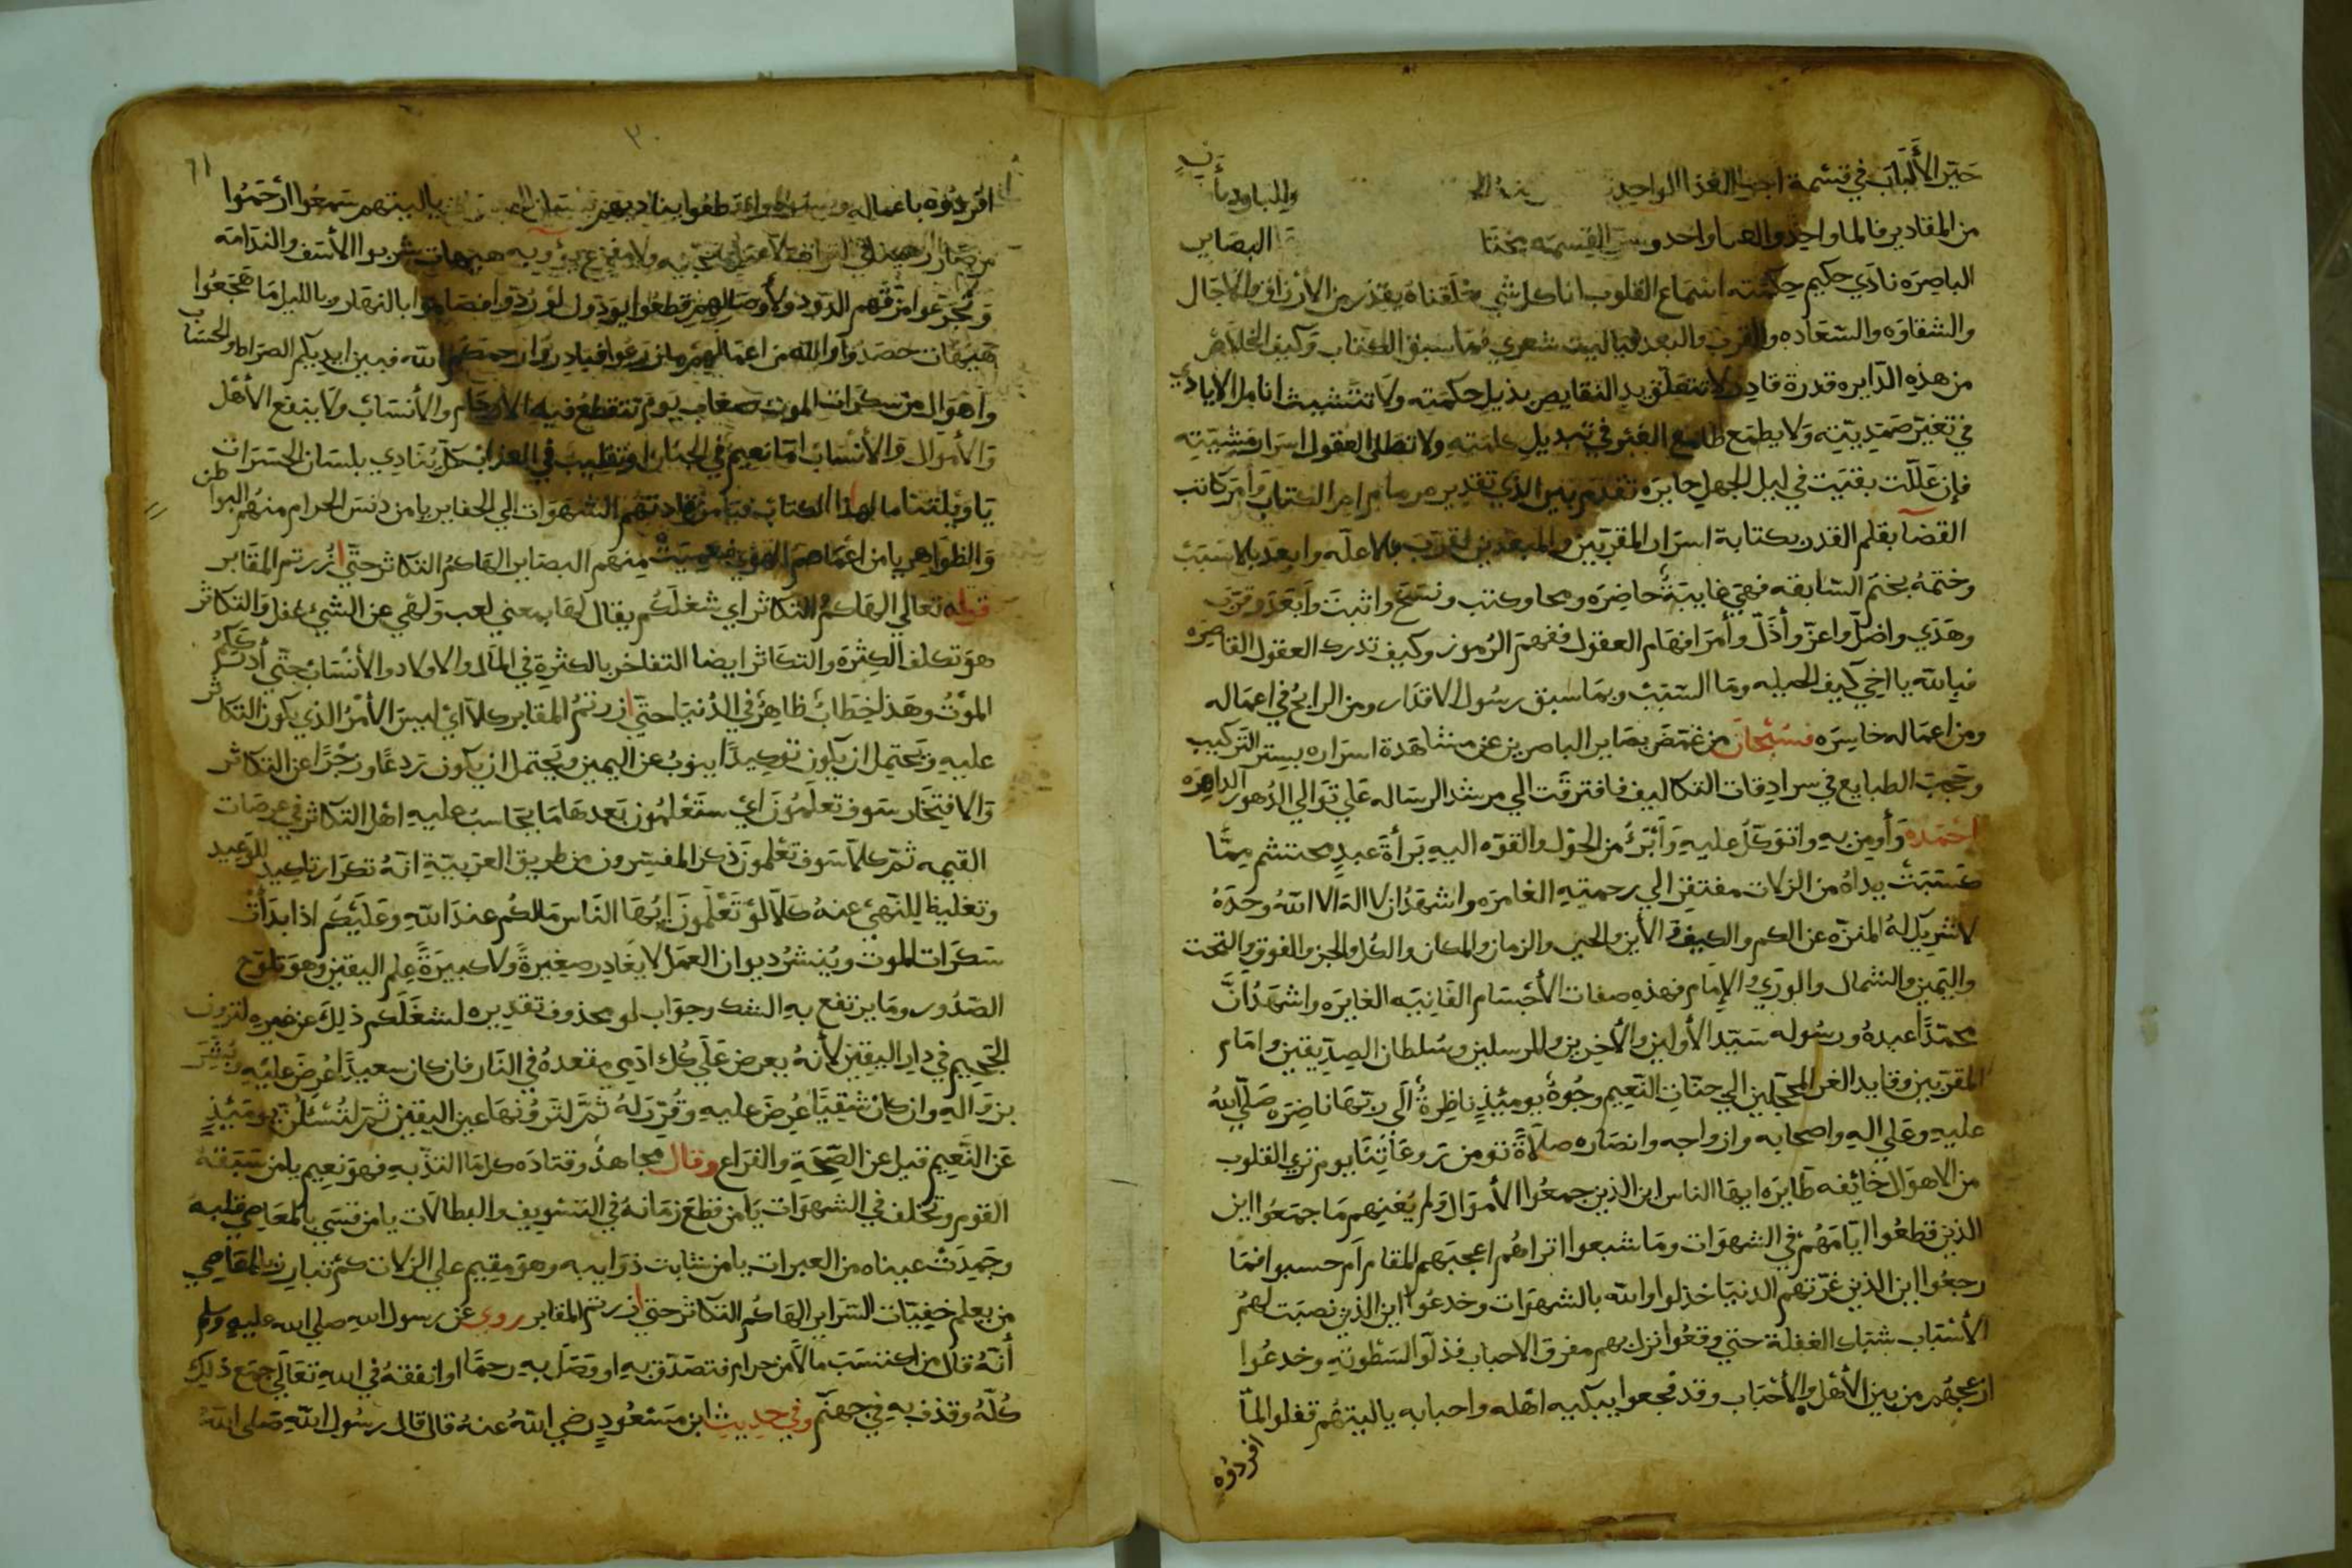 حَيّر الألباب في قسمة اجزا الغذا الواحد
من المقادير فالما واحد والهوا واحد وسر القسمه البصاير
الباصره نادي حكيم حكمته اسماع القلوب انا كل شي خلقناه بقدر من الارزاق والاجال
والشقاوه والسعاده والقرب والبعد فيا ليت شعري بما سبق الكتاب وكيف الخلاص
من هذه الدايره قدرة قادر لا تتعلق يد النقايص بذيل حكمته ولا تتشبث انامل الايادي
في تغير صمديته ولا يطمع طامع الغير في تبديل كلمته ولا تطلع العقول اسرار مشيته
فإن عَلّلت بقيت في ليل الجهل حايره وأمر كاتب
القضا بقلم القدر بكتابة اسرار المقربين والمبعدين فقرب بلا علّه وابعد بلا سبب
وختمهُ بختم السابقه فهي غايبة حاضره ومحا وكتب ونسخ واثبت وابعد وقرب
وهدَي واضلّ واعزّ وأذلّ وأمر افهام العقول ففهم الرُموز وكيف تدرك العقول القاصره
فبالله يا اخي كيف الحيله وما السبب وبما سبق رسُول الاقدار ومن الرابح في اعماله
ومن اعماله خاسره فسُبْحان من غمّض بصاير الباصرين عن مشاهدة اسراره بستر التركيب
وحجب الطبايع في سرادقات التكاليف فافترقت الي مرشد الرساله علي توالي الدُهور الداهره
احمده وأومن به واتوكل عليه وأبرأ من الحول والقوه اليه برأة عبد محتشم ممّا
كسبت يداه من الزلات مفتقر الي رحمته الغامره واشهدُ ان لا اله الا الله وحدَهُ
لا شريك لهُ المنزه عن الكم والكيف والأين والحين والزمان والمكان والكل والجز والفوق والتحت
واليمين والشمال والوري والامام فهذه صفات الأجسام الفانيه الغابره واشهدُ أنّ
محمّدًا عبده ورسُوله سيّد الأولين والأخرين والمرسلين وسُلطان الصدّيقين وامام
المقربين وقايد الغر المحجلين الي جنات النعيم وجُوهٌ يومئذٍ ناظرةٌ الي ربّها ناضره صلّي اللهُ
عليه وعلي اله واصحابه وازواجه وانصاره صلاةً تومن روعاتنا يوم تري القلوب
من الاهوال خائفه طايره ايها الناس اين الذين جمعُوا الأموال ولم يُغنهم ما جمعُوا اين
الذين قطعُوا ايّامهُم في الشهوات وما شبعوا اتراهُم اعجبهم المقام ام حسبوا فما
رجعُوا اين الذين غرّتهم الدنيا خذلوا والله بالشهوات وخدعُوا اين الذين نصبت لهُم
الأسباب شباك الغفلة حتي وقعُوا نزل بهم مفرق الاحباب فذلّوا لسَطْوته وخدعُوا
ازعجهُم من بين الأهل والأحباب وقد فجعوا يبكيه اهله واحبابه يا ليتهُم قفلوا لمّا
افردُوه
٣٠
٦١
افردُوه باعماله يا ليتهم سَمعُوا
ولا مفزع هيهات شربوا الأسف والندامه
وتُجرعوا مزقهم الدود ولأوصالهم قطعُوا يودون لو رُدّوا فصاموا بالنهار وبالليل ما هَجَعُوا
هَيهات حصدُوا والله من اعمالهم ما زرعُوا فبادروا رحمكم الله فبين ايديكم الصراط والحساب
واهوال من سكرات الموت صعاب يوم تتقطع فيه الأرحام والأنساب ولا ينفع الأهل
والأموال والأنساب امّا نعيم في الجنان او تقليب في العذاب كل يُنادي بلسان الحسرات
يا ويلتنا ما لهذا الكتاب فيا من قادتهُم الشهوات الي الحفاير يا من دنس الحرام منهُم البواطن
والظواهر يا من اعماهم الهوي فعميت منهم البصاير الهاكمُ التكاثر حتّي زرتم المقابر
قوله تعالي الهاكمُ التكاثر اي شغلكُم يقال لها بمعني لعب ولهي عن الشيء غفل والتكاثر
هو تكلف الكثرة والتكاثر ايضا التفاخر بالكثرة في المال والاولاد والأنساب حتّي أدرككم
الموتُ وهذا خطابٌ ظاهر في الدُنيا حتّي زرتمُ المقابر كلا أي ليس الأمرُ الذي يكون التكاثر
عليه ويَحتمل ان يكون توكيدًا ينوبُ عن اليمين ويحتمل ان يكون ردعًا وزجْرًا عن التكاثر
والافتخار سَوف تعلمُون أي ستعلمُون بعدها ما يحاسب عليه اهل التكاثر في عرصات
القيمه ثمّ كلّا سَوف تعلمون ذكر المفسّرون من طريق العربيّة انهُ تكرار تاكيد للوعيد
وتغليظا للنهي عنهُ كلّا لو تعلمون ايها الناس مالكُم عند الله وعليكم اذا بدأت
سكرات الموت ويُنشرُ ديوان العمل لا يغادر صغيرةً ولا كبيرةً علم اليقين وهو بلوج
الصّدُور وما يرتفع به الشك وجواب لو محذوف تقديره لشغلكم ذلك عن غيره لترون
الجحيم في دار اليقين لأنهُ يعرض علي كل ادمي مقعدهُ في النار فان كان سعيدًا عُرض عليه وبُشّر
بزواله وان كان شقيًا عُرض عليه وقُرّر لهُ ثمّ لترونها عين اليقين ثمّ لتُسئلُنّ يومئذٍ
عن النّعيم قيل عن الصحة والفراغ وقال مجاهدُ وقتاده كل ما التذّ به فهو نعيم يا من سَبقهُ
القوم وتخلف في الشهوات يا من قطع زمانهُ في التسْويف والبطالات يا من قسي بالمعاصي قلبهُ
وجَمدت عيناه من العبرات يا من شابت ذوايبه وهو مقيم علي الزلات كم تبارز بالمعاصي
من يعلم خفيّات السّراير الهاكُم التكاثر حتي زرتم المقابر روي عن رسول الله صلي الله عليه وسلم
أنّهُ قال من اكتسَب مالًا من حرام فتصدّق به او وصل به رحمًا او انفقهُ في الله تعالي جمع ذلك
كُلّهُ وقذف به في جهنّم وفي حديث ابن مسعُودٍ رضي اللهُ عنهُ قال قال رسُول الله صَلي اللهُ